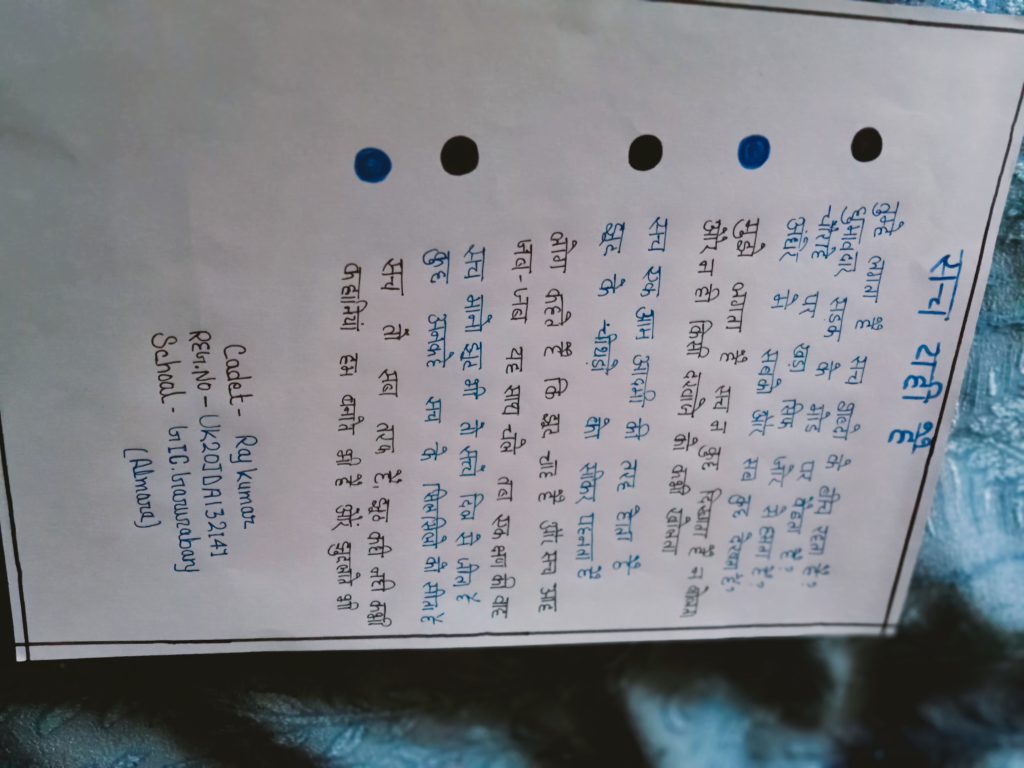 सच यही है
तुम्हे लगता है सच झूठों के बीच रहता है?
घुमावदार सडक के मोड पर बैठता है?
चौराहे पर खडा सिर्फ जोर से हंसता है?
अंधेरे में सबकी ओर सब कुछ देखता है,
मुझे लगता है सच न कुछ दिखाता है न
और न ही किसी दरवाजे को कभी खोलता
सच एक आम आदमी की तरह होता है
झूठ के चीथड़ो को सीकर पहनता है
लोग कहते है कि झूठ चार है और सच आठ
जब-जब यह साथ चले तब एक क्षण की बाट
सच मानो झूठ भी तो सच्चे दिल से जीता है
कुछ अनकहे सच के सिलसिलों को सीता है
सच तो सब तरफ है, झूठ कही नही कभी
कहानियां हम बनाते भी है और झुठलाते भी
Cadet - Raj Kumar
REG.No - UK20JDA132147
School - GIC Garurabanj
(Almora)